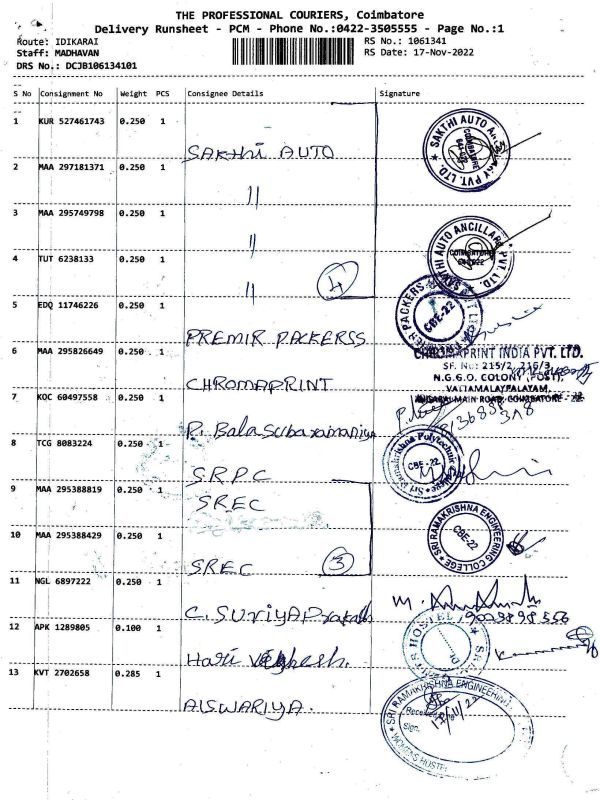 THE PROFESSIONAL COURIERS, Coimbatore
Delivery Runsheet - PCM - Phone No.:0422-3505555 - Page No.:1
Route: IDIKARAI
RS No.: 1061341
Staff: MADHAVAN
RS Date: 17-Nov-2022
DRS No.: DCJB106134101
S No Consignment No Weight PCS Consignee Details Signature
1 KUR 527461743 0.250 1 SAKTHI AUTO
2 MAA 297181371 0.250 1 "
3 MAA 295749798 0.250 1 "
4 TUT 6238133 0.250 1 " 4
5 EDQ 11746226 0.250 1 PREMIR PACKERSS
6 MAA 295826649 0.250 1 CHROMAPRINT
CHROMAPRINT INDIA PVT. LTD.
SF. No: 215/2, 216/3,
N.G.G.O. COLONY (POST),
7 KOC 60497558 0.250 1 P. Balasubaramaniya
8 TCG 8083224 0.250 1 S.R.P.C
9 MAA 295388819 0.250 1 SREC
10 MAA 295388429 0.250 1 SREC 3
11 NGL 6897222 0.250 1 C. SuriyaPrakash
12 APK 1289805 0.100 1 Hari
13 KVT 2702658 0.285 1 AISWARIYA.
SAKTHI AUTO ANCILLARY PVT. LTD.
COIMBATORE
SAKTHI AUTO ANCILLARY PVT. LTD.
COIMBATORE
PACKERS
CBE-22
Sri Ramakrishna Polytechnic
CBE-22
SRI RAMAKRISHNA ENGINEERING COLLEGE
CBE-22
HOSTEL
SRI RAMAKRISHNA ENGINEERING
WOMENS HOSTEL
Sign.